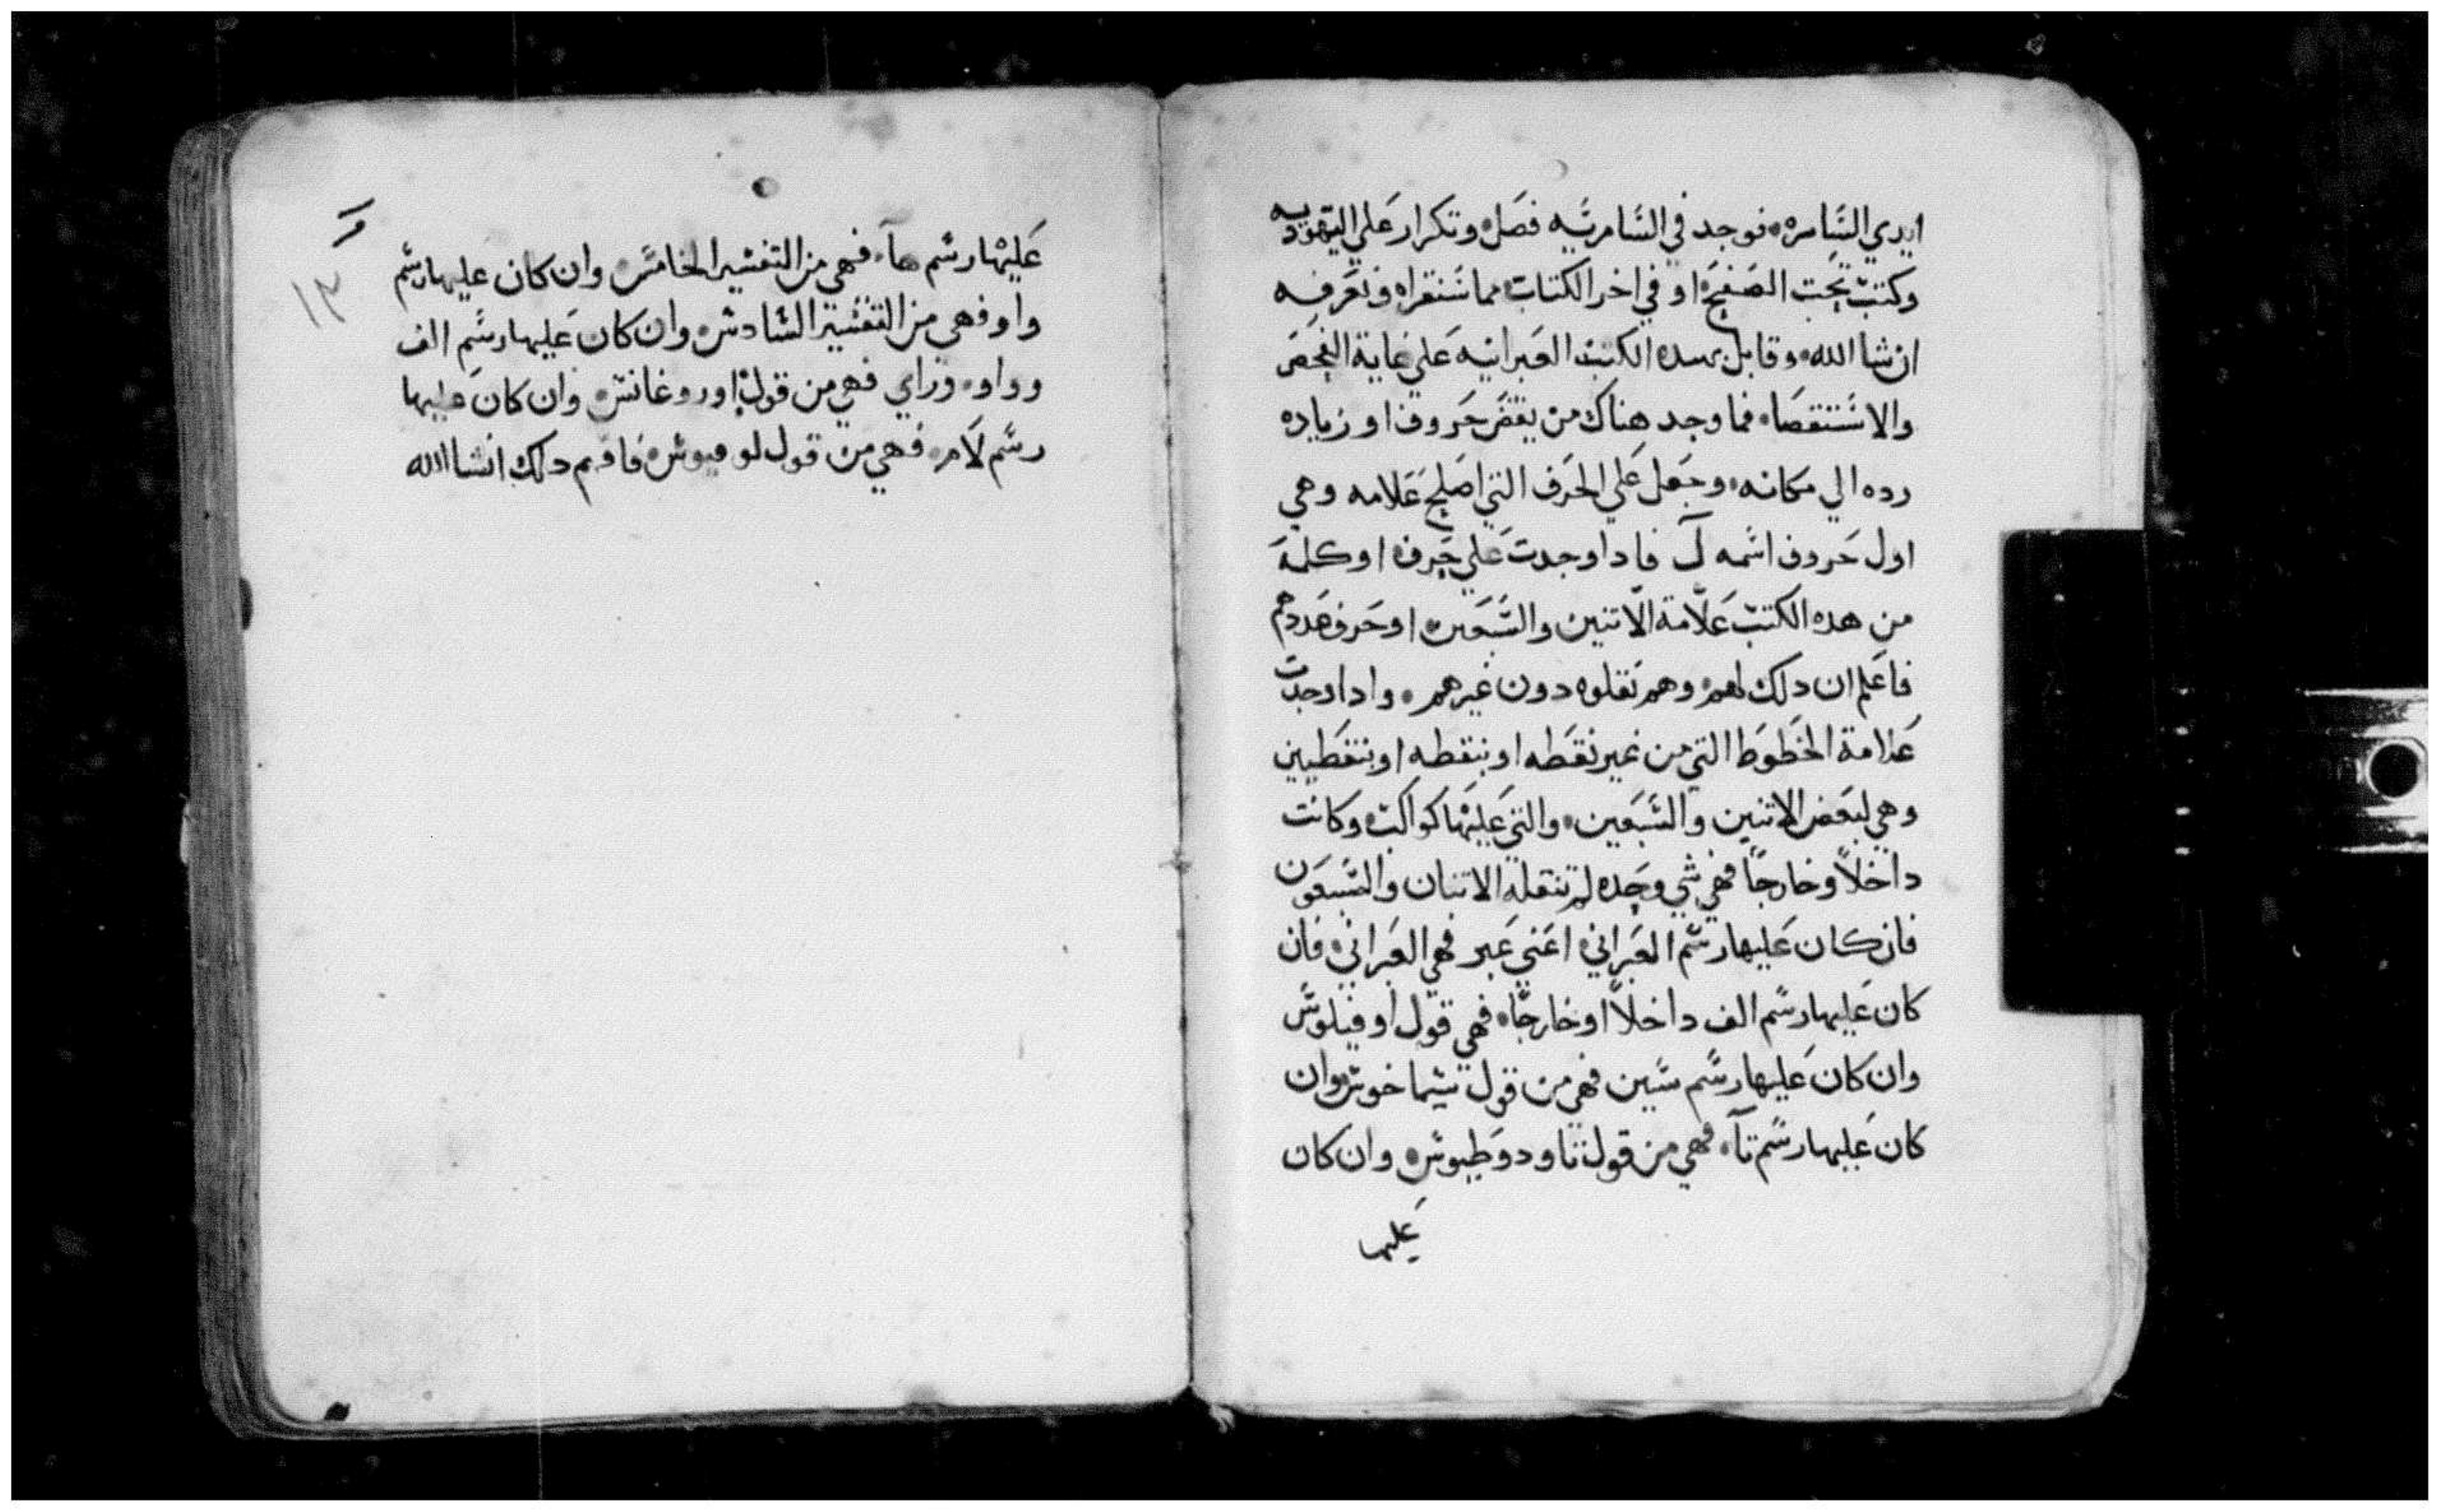 ايدي السامره فوجد في السامريه فصل وتكرار علي اليهوديه
وكتب تحت الصفح او في اخر الكتاب مما ستقراه وتعرفه
ان شا الله وقابل بهده الكتب العبرانيه علي غاية الفحص
والاستقصا فما وجد هناك من بعض حروف او زياده
رده الي مكانه وجعل علي الحرف التي اصلح علامه وهي
اول حروف اسمه ل فادا وجدت علي حرف او كلمة
من هده الكتب علامة الاتنين والسبعين او حرف عددهم
فاعلم ان دلك لهم وهم نقلوه دون غيرهم وادا وجدت
علامة الخطوط التي من غير نقطه او بنقطه او بنقطين
وهي لبعض الاتنين والسبعين والتي عليها كواكب وكانت
داخلاً وخارجاً فهي شي وحده لم تنقله الاتنان والسبعون
فان كان عليها رسم العبراني اعني عبر فهي العبراني فان
كان عليها رسم الف داخلاً او خارجاً فهي قول اوفيلوس
وان كان عليها رسم سين فهي من قول سيماخوس وان
كان عليها رسم تآ فهي من قول تاودوطيوس وان كان
عليها
١٣
عليها رسم هآ فهي من التفسير الخامس وان كان عليها رسم
واو فهي من التفسير السادس وان كان عليها رسم الف
وواو وزاي فهي من قول اوروغانس وان كان عليها
رسم لام فهي من قول لوقيوس فافهم دلك انشا الله